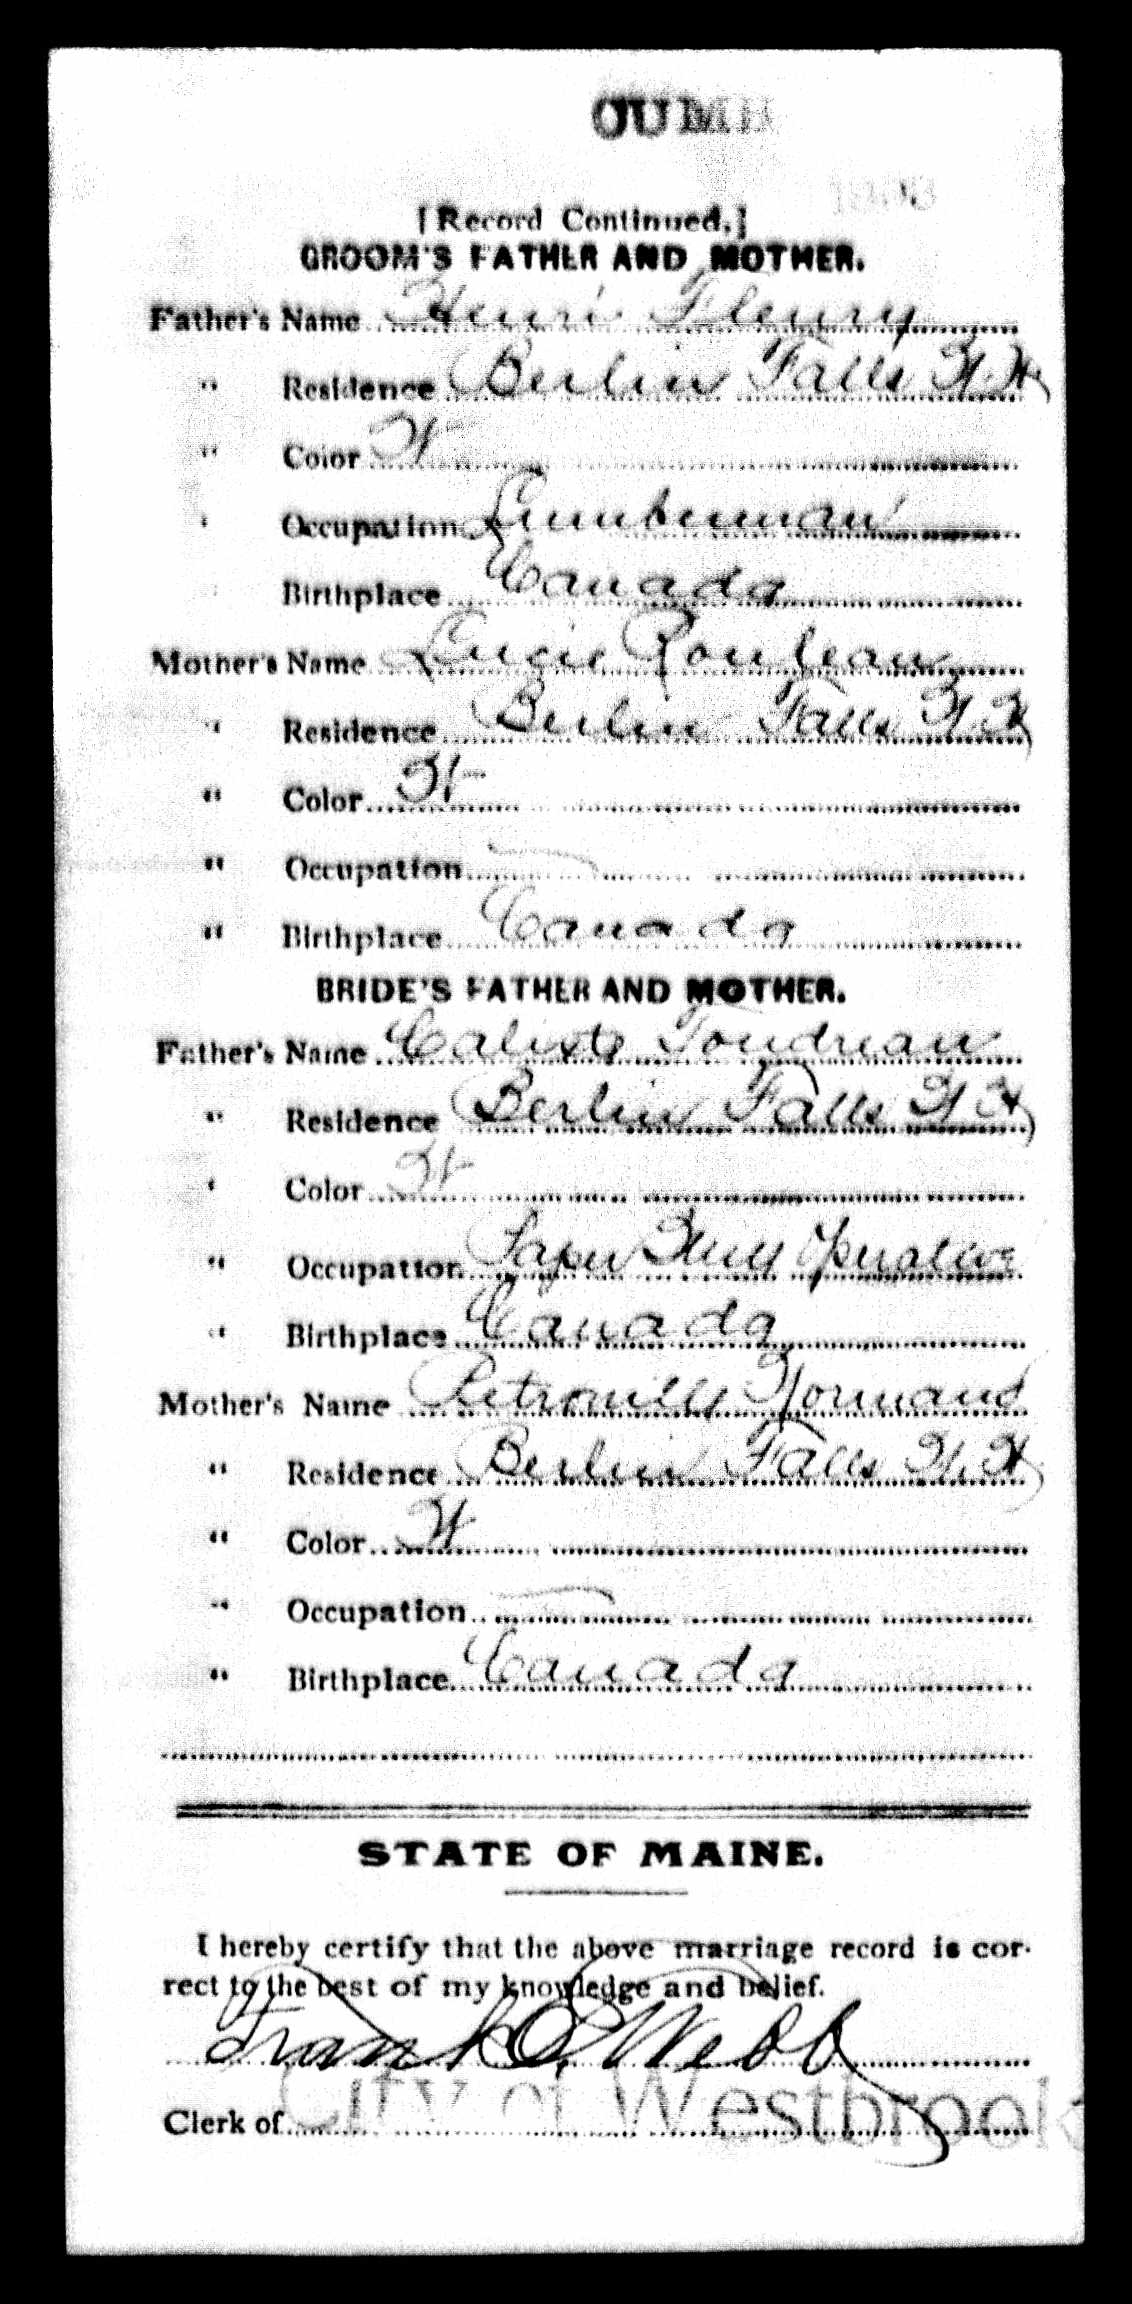 CUMB
1893
[Record Continued.]
GROOM'S FATHER AND MOTHER.
Father's Name Henri Fleury
" Residence Berlin Falls N.H.
" Color W
" Occupation Lumberman
" Birthplace Canada
Mother's Name Lucie Rouleau
" Residence Berlin Falls N.H
" Color W
" Occupation
" Birthplace Canada
BRIDE'S FATHER AND MOTHER.
Father's Name Calixte Toudreau
" Residence Berlin Falls N H
" Color W
" Occupation Paper Mill Operative
" Birthplace Canada
Mother's Name Petronille Normand
" Residence Berlin Falls N.H
" Color W
" Occupation
" Birthplace Canada
STATE OF MAINE.
I hereby certify that the above marriage record is cor-
rect to the best of my knowledge and belief.
Frank Webb
Clerk of City of Westbrook